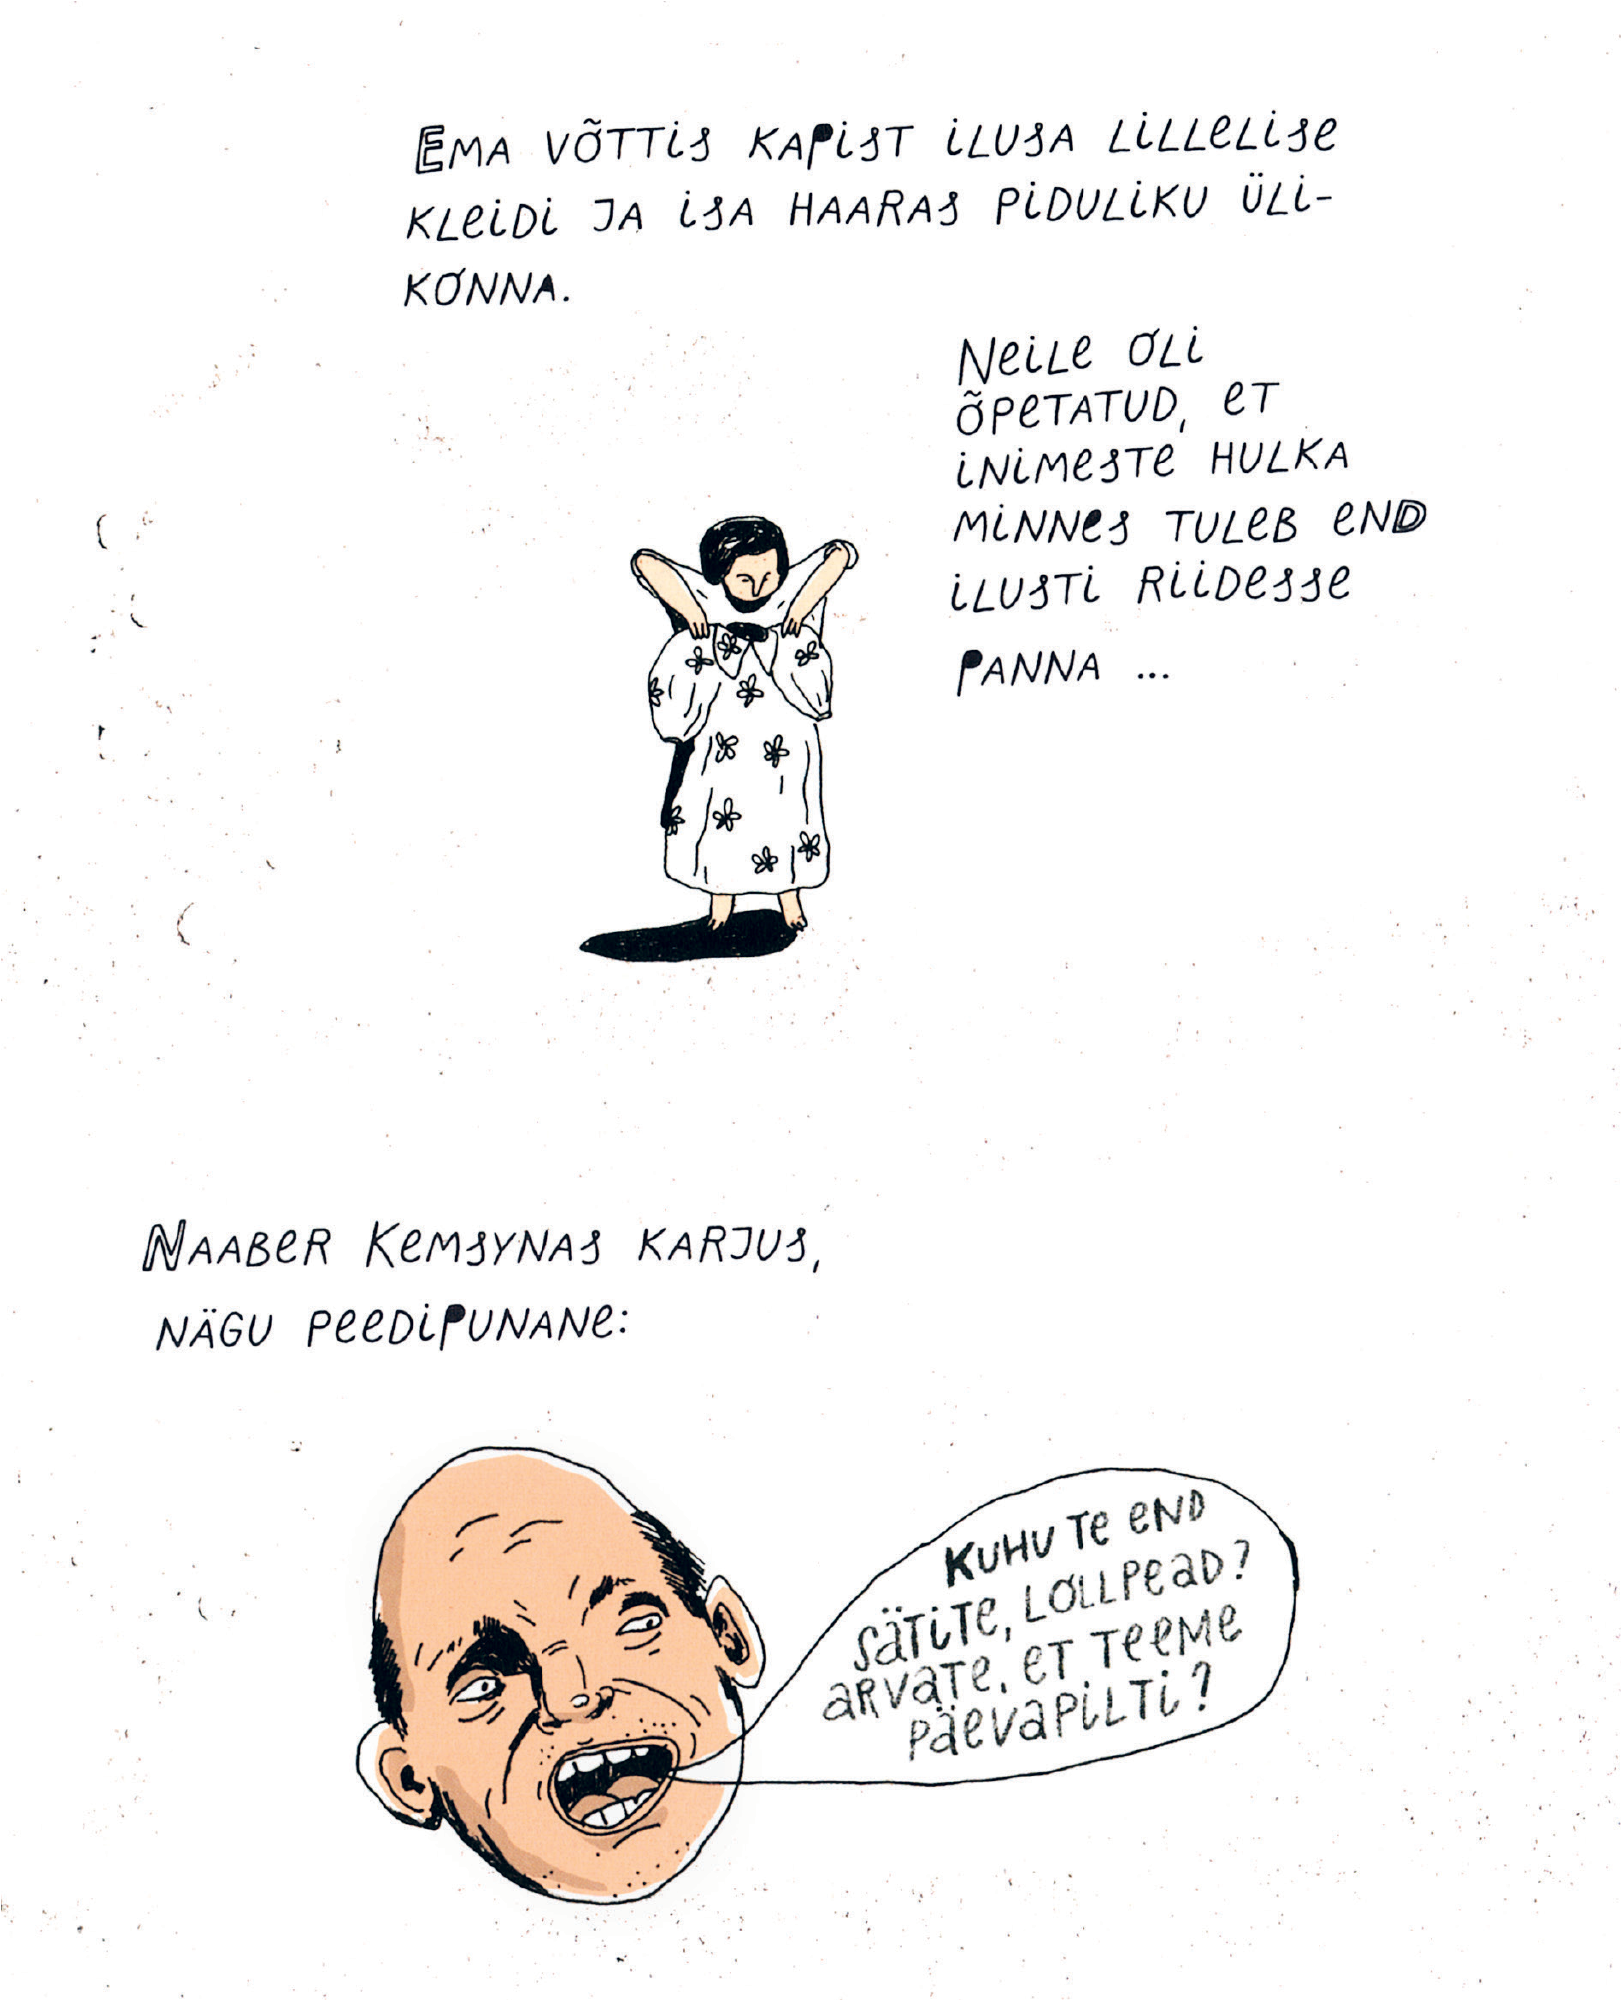 Ema võttis kapist ilusa lillelise
kleidi ja isa haaras piduliku üli-
konna.
Neile oli
õpetatud, et
inimeste hulka
minnes tuleb end
ilusti riidesse
panna ...
Naaber Kemsynas karjus,
nägu peedipunane:
Kuhu te end
sätite, lollpead?
Arvate, et teeme
päevapilti?